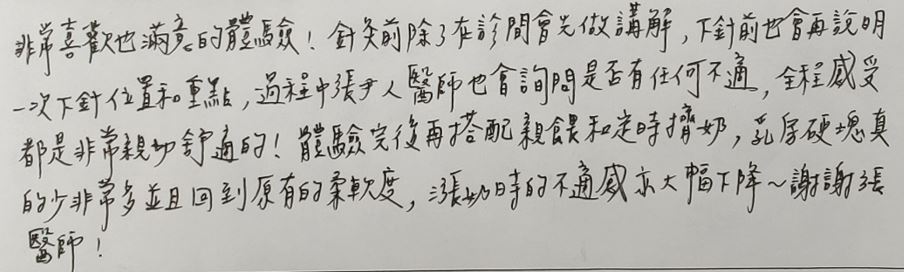 非常喜歡也滿意的體驗！針灸前除了在診間會先做講解，下針前也會再說明
一次下針位置和重點，過程中張尹人醫師也會詢問是否有任何不適，全程感受
都是非常親切舒適的！體驗完後再搭配親餵和定時擠奶，乳房硬塊真
的少非常多並且回到原有的柔軟度，漲奶時的不適感亦大幅下降～謝謝張
醫師！